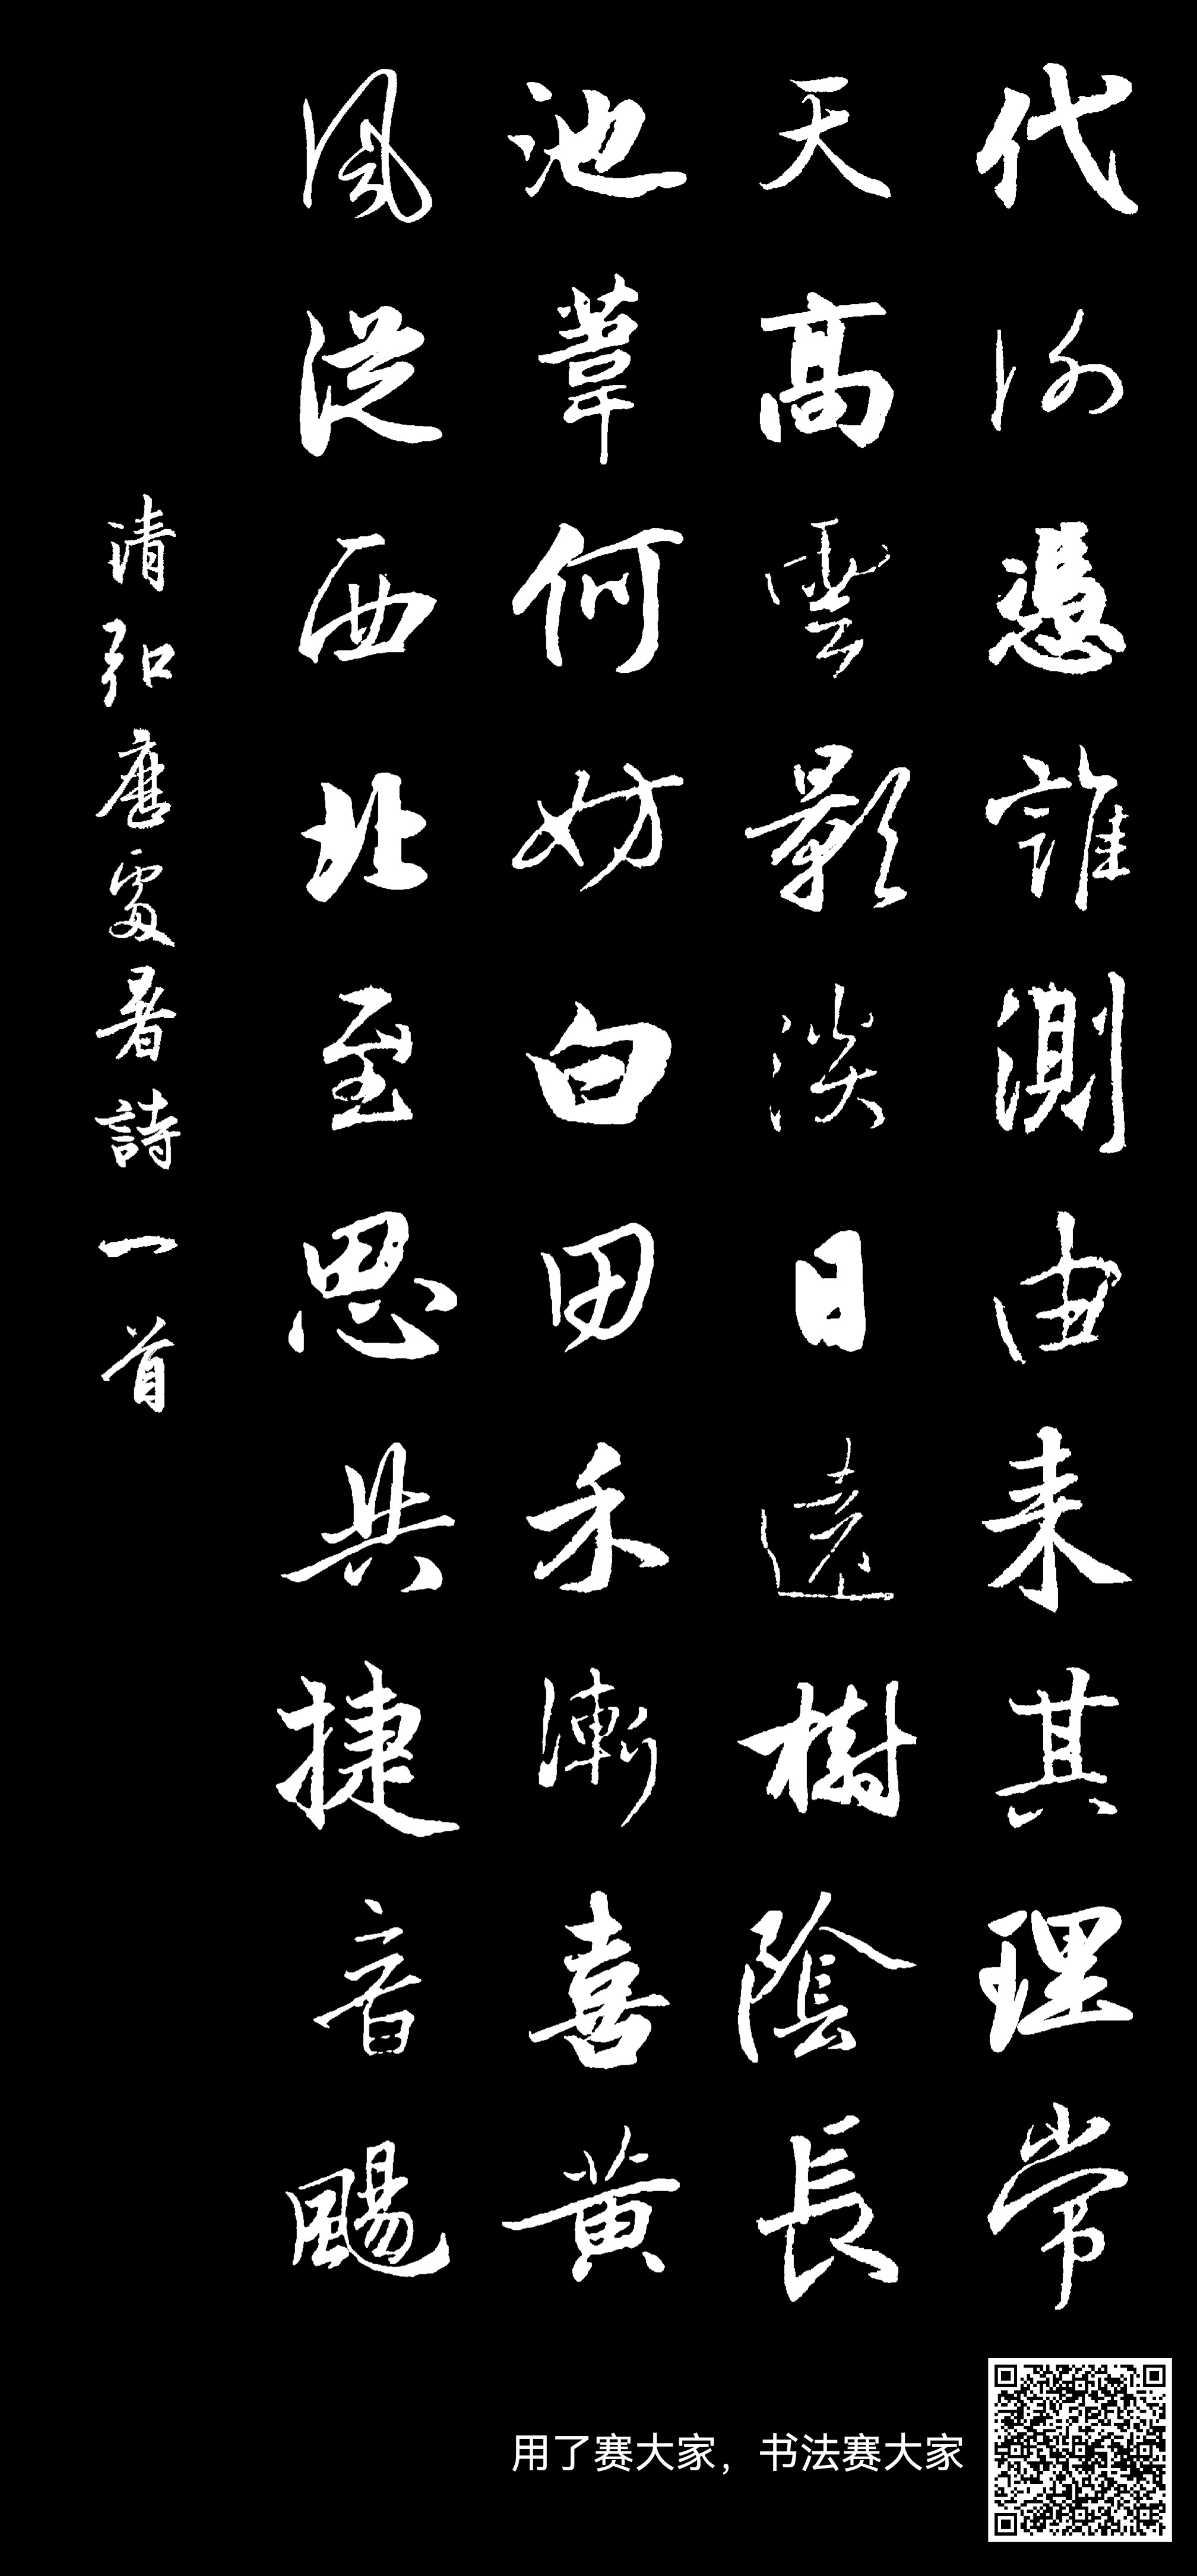 代谢憑誰測由来其理常
天高雲影淡日遠樹陰長
池葦何妨白田禾漸喜黄
風従西北至思共捷音颺
清弘曆處暑詩一首
用了赛大家，书法赛大家